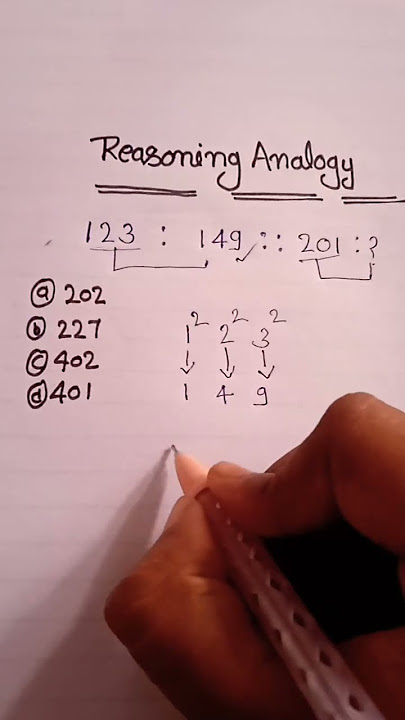 Reasoning Analogy
123 : 149 :: 201 : ?
ⓐ 202
ⓑ 227
ⓒ 402
ⓓ 401
1² 2² 3²
↓ ↓ ↓
1 4 9